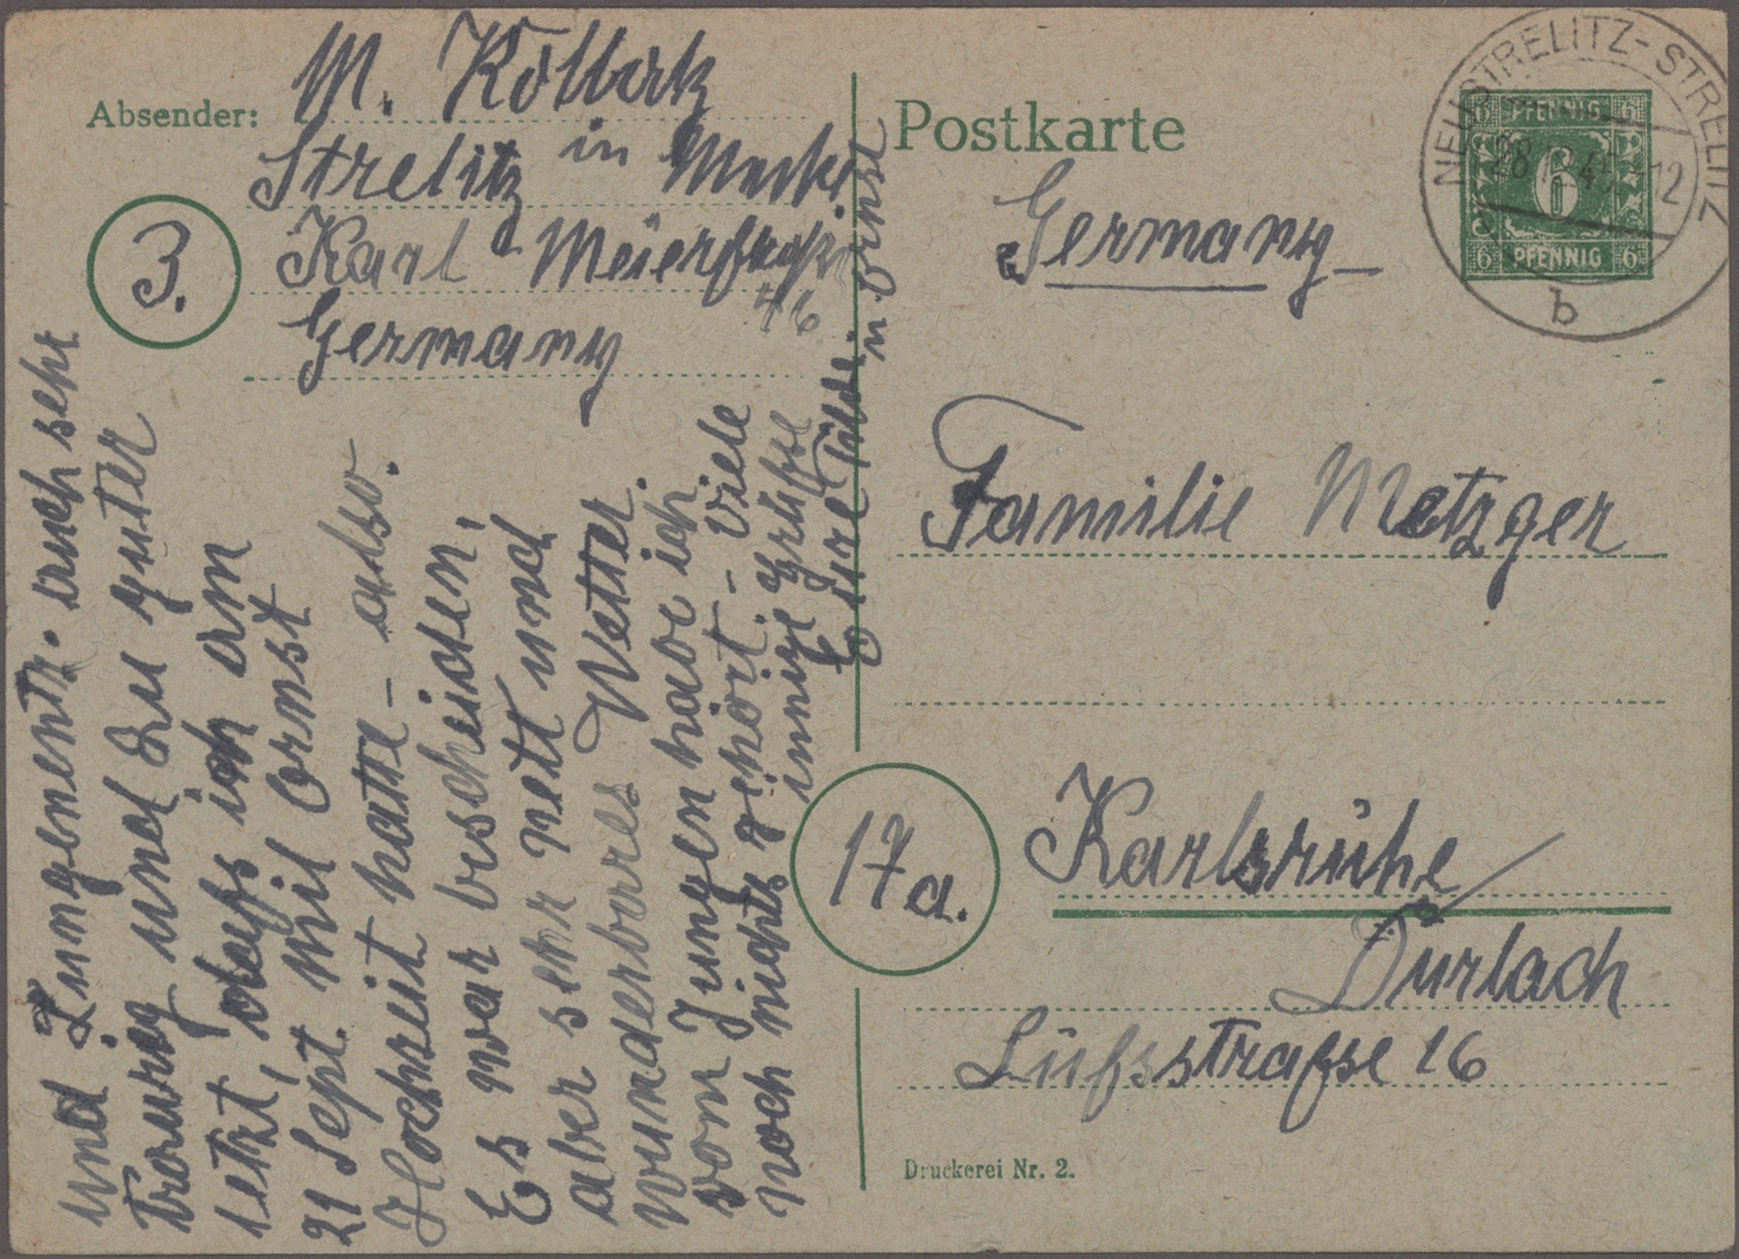 Absender:
M. Kölbatz
Strelitz in Meckl
Karl Meierstraße
46
Germany
3.
Postkarte
Germany
NEUSTRELITZ-STRELITZ
28 12
b
6 PFENNIG 6
6
6 PFENNIG 6
Familie Metzger
17a.
Karlsruhe
Durlach
Lußstraße 16
Druckerei Nr. 2.
und Lungenentz. auch sehr
traurig und zu guter
letzt, dass ich am
21 Sept. mit Ernst
Hochzeit hatte - also.
Es war bescheiden,
aber sehr nett und
wunderbares Wetter.
vom Jungen habe ich
noch nichts gehört - viele
innige Grüsse
Eure Tilde u. Ernst